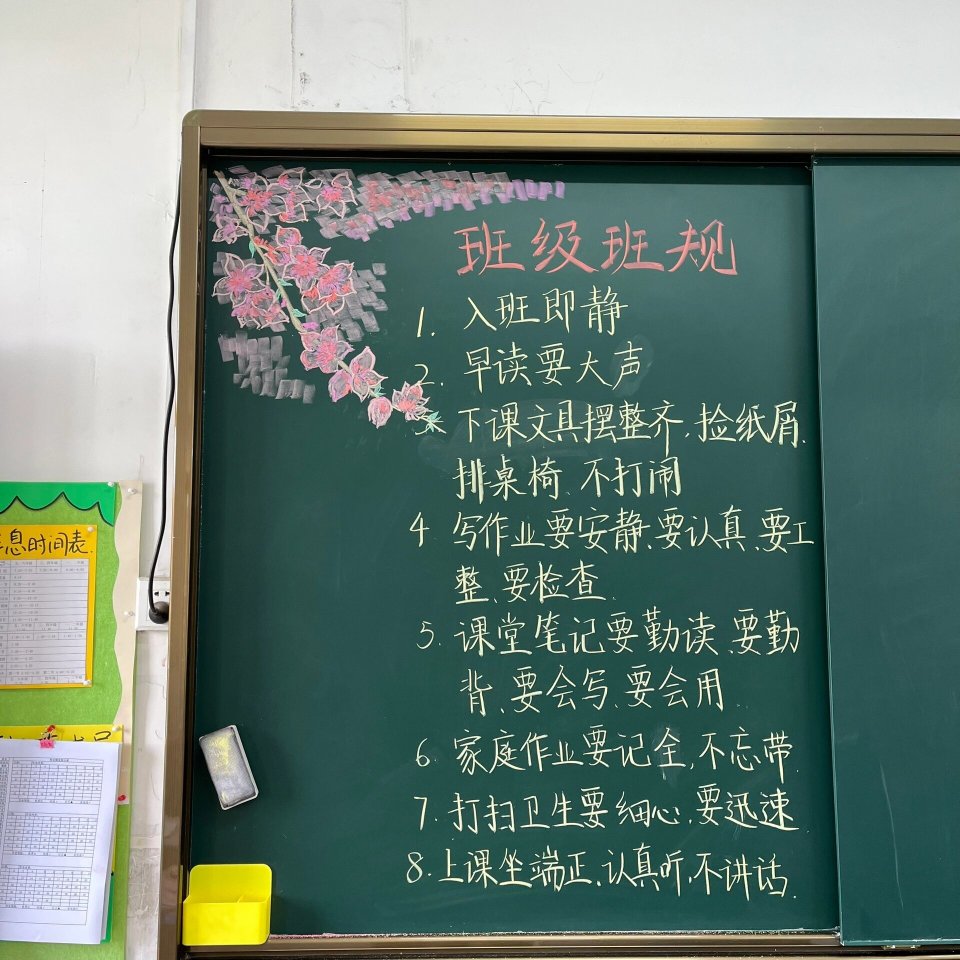 班级班规
1. 入班即静
2. 早读要大声
3. 下课文具摆整齐,捡纸屑、
排桌椅、不打闹
4 写作业要安静、要认真、要工
整、要检查.
5. 课堂笔记要勤读、要勤
背、要会写、要会用
6. 家庭作业要记全,不忘带.
7. 打扫卫生要细心,要迅速
8. 上课坐端正、认真听,不讲话.
息时间表.